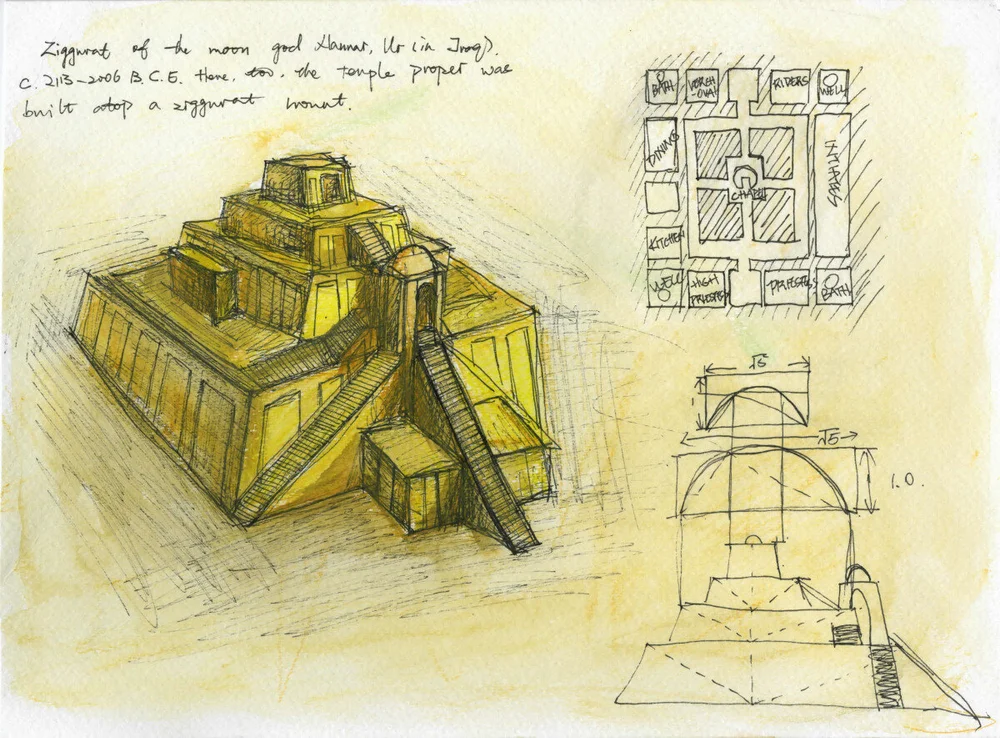 Ziggurat of the moon god Nannar, Ur (in Iraq).
c. 2113-2006 B.C.E. Here, too, the temple proper was
built atop a ziggurat mount.
BATH
RIDERS
WELL
DINING
CHAPEL
INITIATES
KITCHEN
WELL
HIGH
PRIESTESS
PRIESTESS
BATH
√5
√5
1.0.